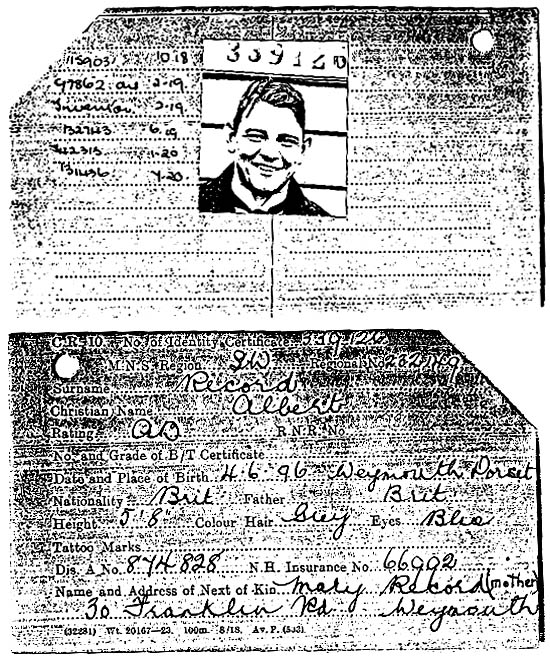 115903 10.18
339120
97862 2-19
Inverclor 2-19
132743 6.19
1-20
4-20
C.R. 10. No. of Identity Certificate 339120
M.N.S. Region SW Regional No.
Surname Record
Christian Name Albert
Rating AB R.N.R. No.
No. and Grade of B/T Certificate
Date and Place of Birth 4.6.96 Weymouth Dorset
Nationality Brit Father Brit
Height 5'8 Colour Hair Grey Eyes Blue
Tattoo Marks
Dis. A No. 874828 N.H. Insurance No. 66002
Name and Address of Next of Kin Mary Record (mother)
30 Franklin Rd Weymouth
(32281) Wt. 20167—23. 100m. 8/18. Av. P. (533)